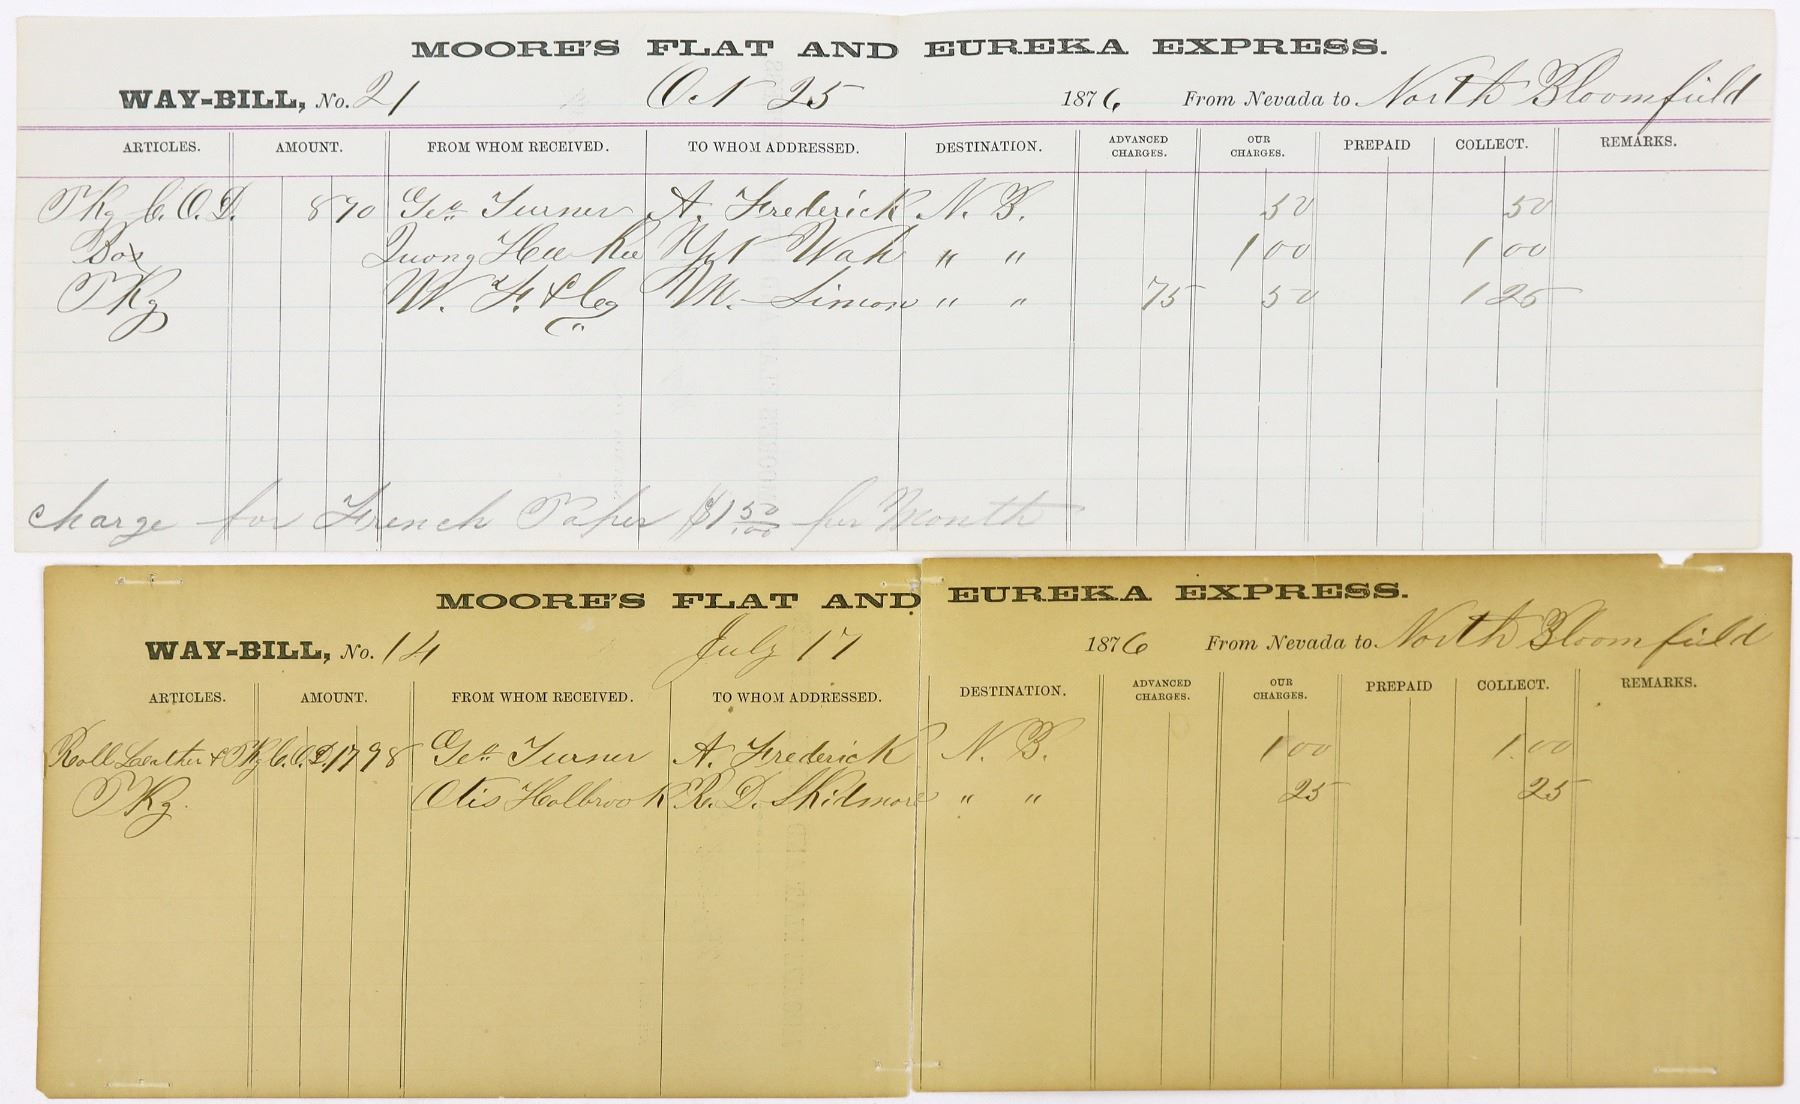 MOORE'S FLAT AND EUREKA EXPRESS.
WAY-BILL, No. 21 Oct 25 1876 From Nevada to North Bloomfield
ARTICLES. AMOUNT. FROM WHOM RECEIVED. TO WHOM ADDRESSED. DESTINATION. ADVANCED CHARGES. OUR CHARGES. PREPAID COLLECT. REMARKS.
Pkg C.O.D. 8 70 Geo. Turner A. Frederick N. B. 50 50
Box Quong Hee Kee Wah " " 1 00 1 00
Pkg W. F. & Co M. Simon " " 75 50 1 25
Charge for French Paper $1 50/100 per Month
MOORE'S FLAT AND EUREKA EXPRESS.
WAY-BILL, No. 14 July 17 1876 From Nevada to North Bloomfield
ARTICLES. AMOUNT. FROM WHOM RECEIVED. TO WHOM ADDRESSED. DESTINATION. ADVANCED CHARGES. OUR CHARGES. PREPAID COLLECT. REMARKS.
Roll Leather & Pkg C.O.D. 17 98 Geo. Turner A. Frederick N. B. 1 00 1.00
Pkg. Otis Holbrook R. D. Skidmore " " 25 25